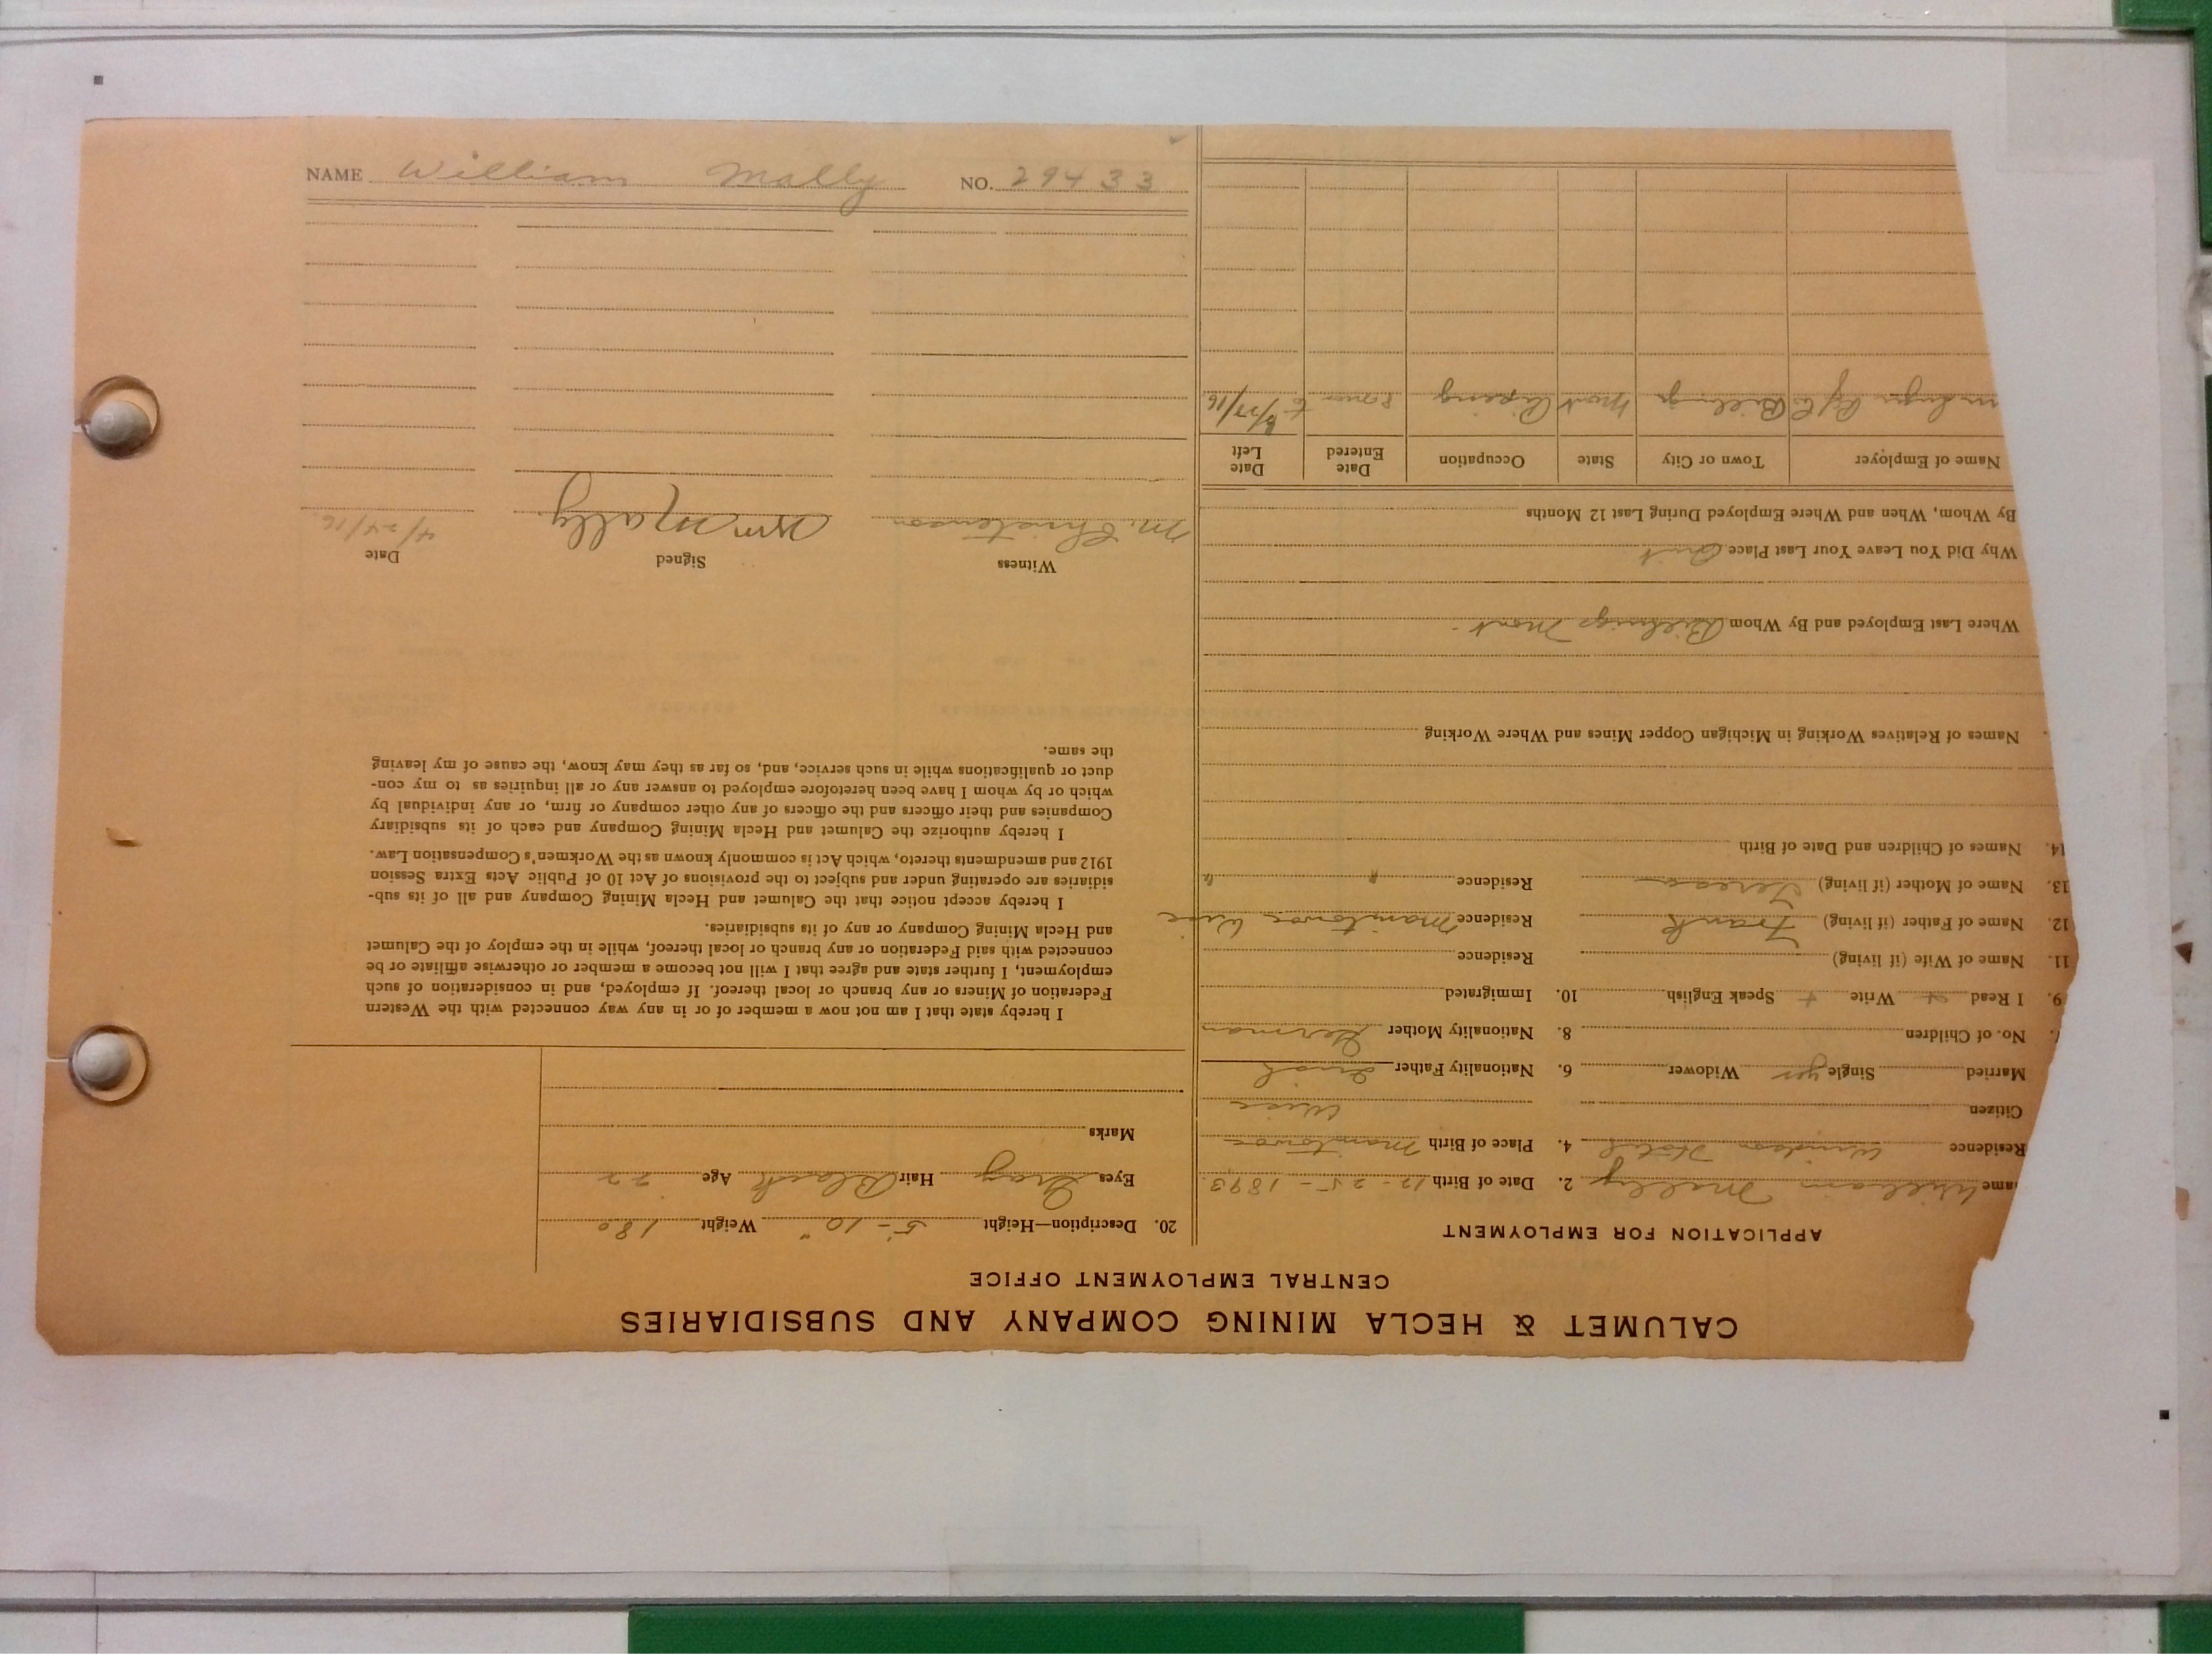 NAME William Mally NO. 29433
CALUMET & HECLA MINING COMPANY AND SUBSIDIARIES
CENTRAL EMPLOYMENT OFFICE
APPLICATION FOR EMPLOYMENT
ame William Mally 2. Date of Birth 12-25-1893
Residence Windsor Hotel 4. Place of Birth Manitowoc
Citizen Wisc
Married Single yes Widower 6. Nationality Father Irish
No. of Children 8. Nationality Mother German
9. I Read + Write + Speak English 10. Immigrated
11. Name of Wife (if living) Residence
12. Name of Father (if living) Frank Residence Manitowoc Wisc
13. Name of Mother (if living) Teresa Residence " "
14. Names of Children and Date of Birth
Names of Relatives Working in Michigan Copper Mines and Where Working
Where Last Employed and By Whom Billings Mont -
Why Did You Leave Your Last Place Quit
By Whom, When and Where Employed During Last 12 Months
Name of Employer Town or City State Occupation Date Entered Date Left
Billings Mont
20. Description—Height 5-10" Weight 180
Eyes Gray Hair Black Age 22
Marks
I hereby state that I am not now a member of or in any way connected with the Western
Federation of Miners or any branch or local thereof. If employed, and in consideration of such
employment, I further state and agree that I will not become a member or otherwise affiliate or be
connected with said Federation or any branch or local thereof, while in the employ of the Calumet
and Hecla Mining Company or any of its subsidiaries.
I hereby accept notice that the Calumet and Hecla Mining Company and all of its sub-
sidiaries are operating under and subject to the provisions of Act 10 of Public Acts Extra Session
1912 and amendments thereto, which Act is commonly known as the Workmen's Compensation Law.
I hereby authorize the Calumet and Hecla Mining Company and each of its subsidiary
Companies and their officers and the officers of any other company or firm, or any individual by
which or by whom I have been heretofore employed to answer any or all inquiries as to my con-
duct or qualifications while in such service, and, so far as they may know, the cause of my leaving
the same.
Witness Signed Date
M. Christenson Wm Mally. 4/24/16.